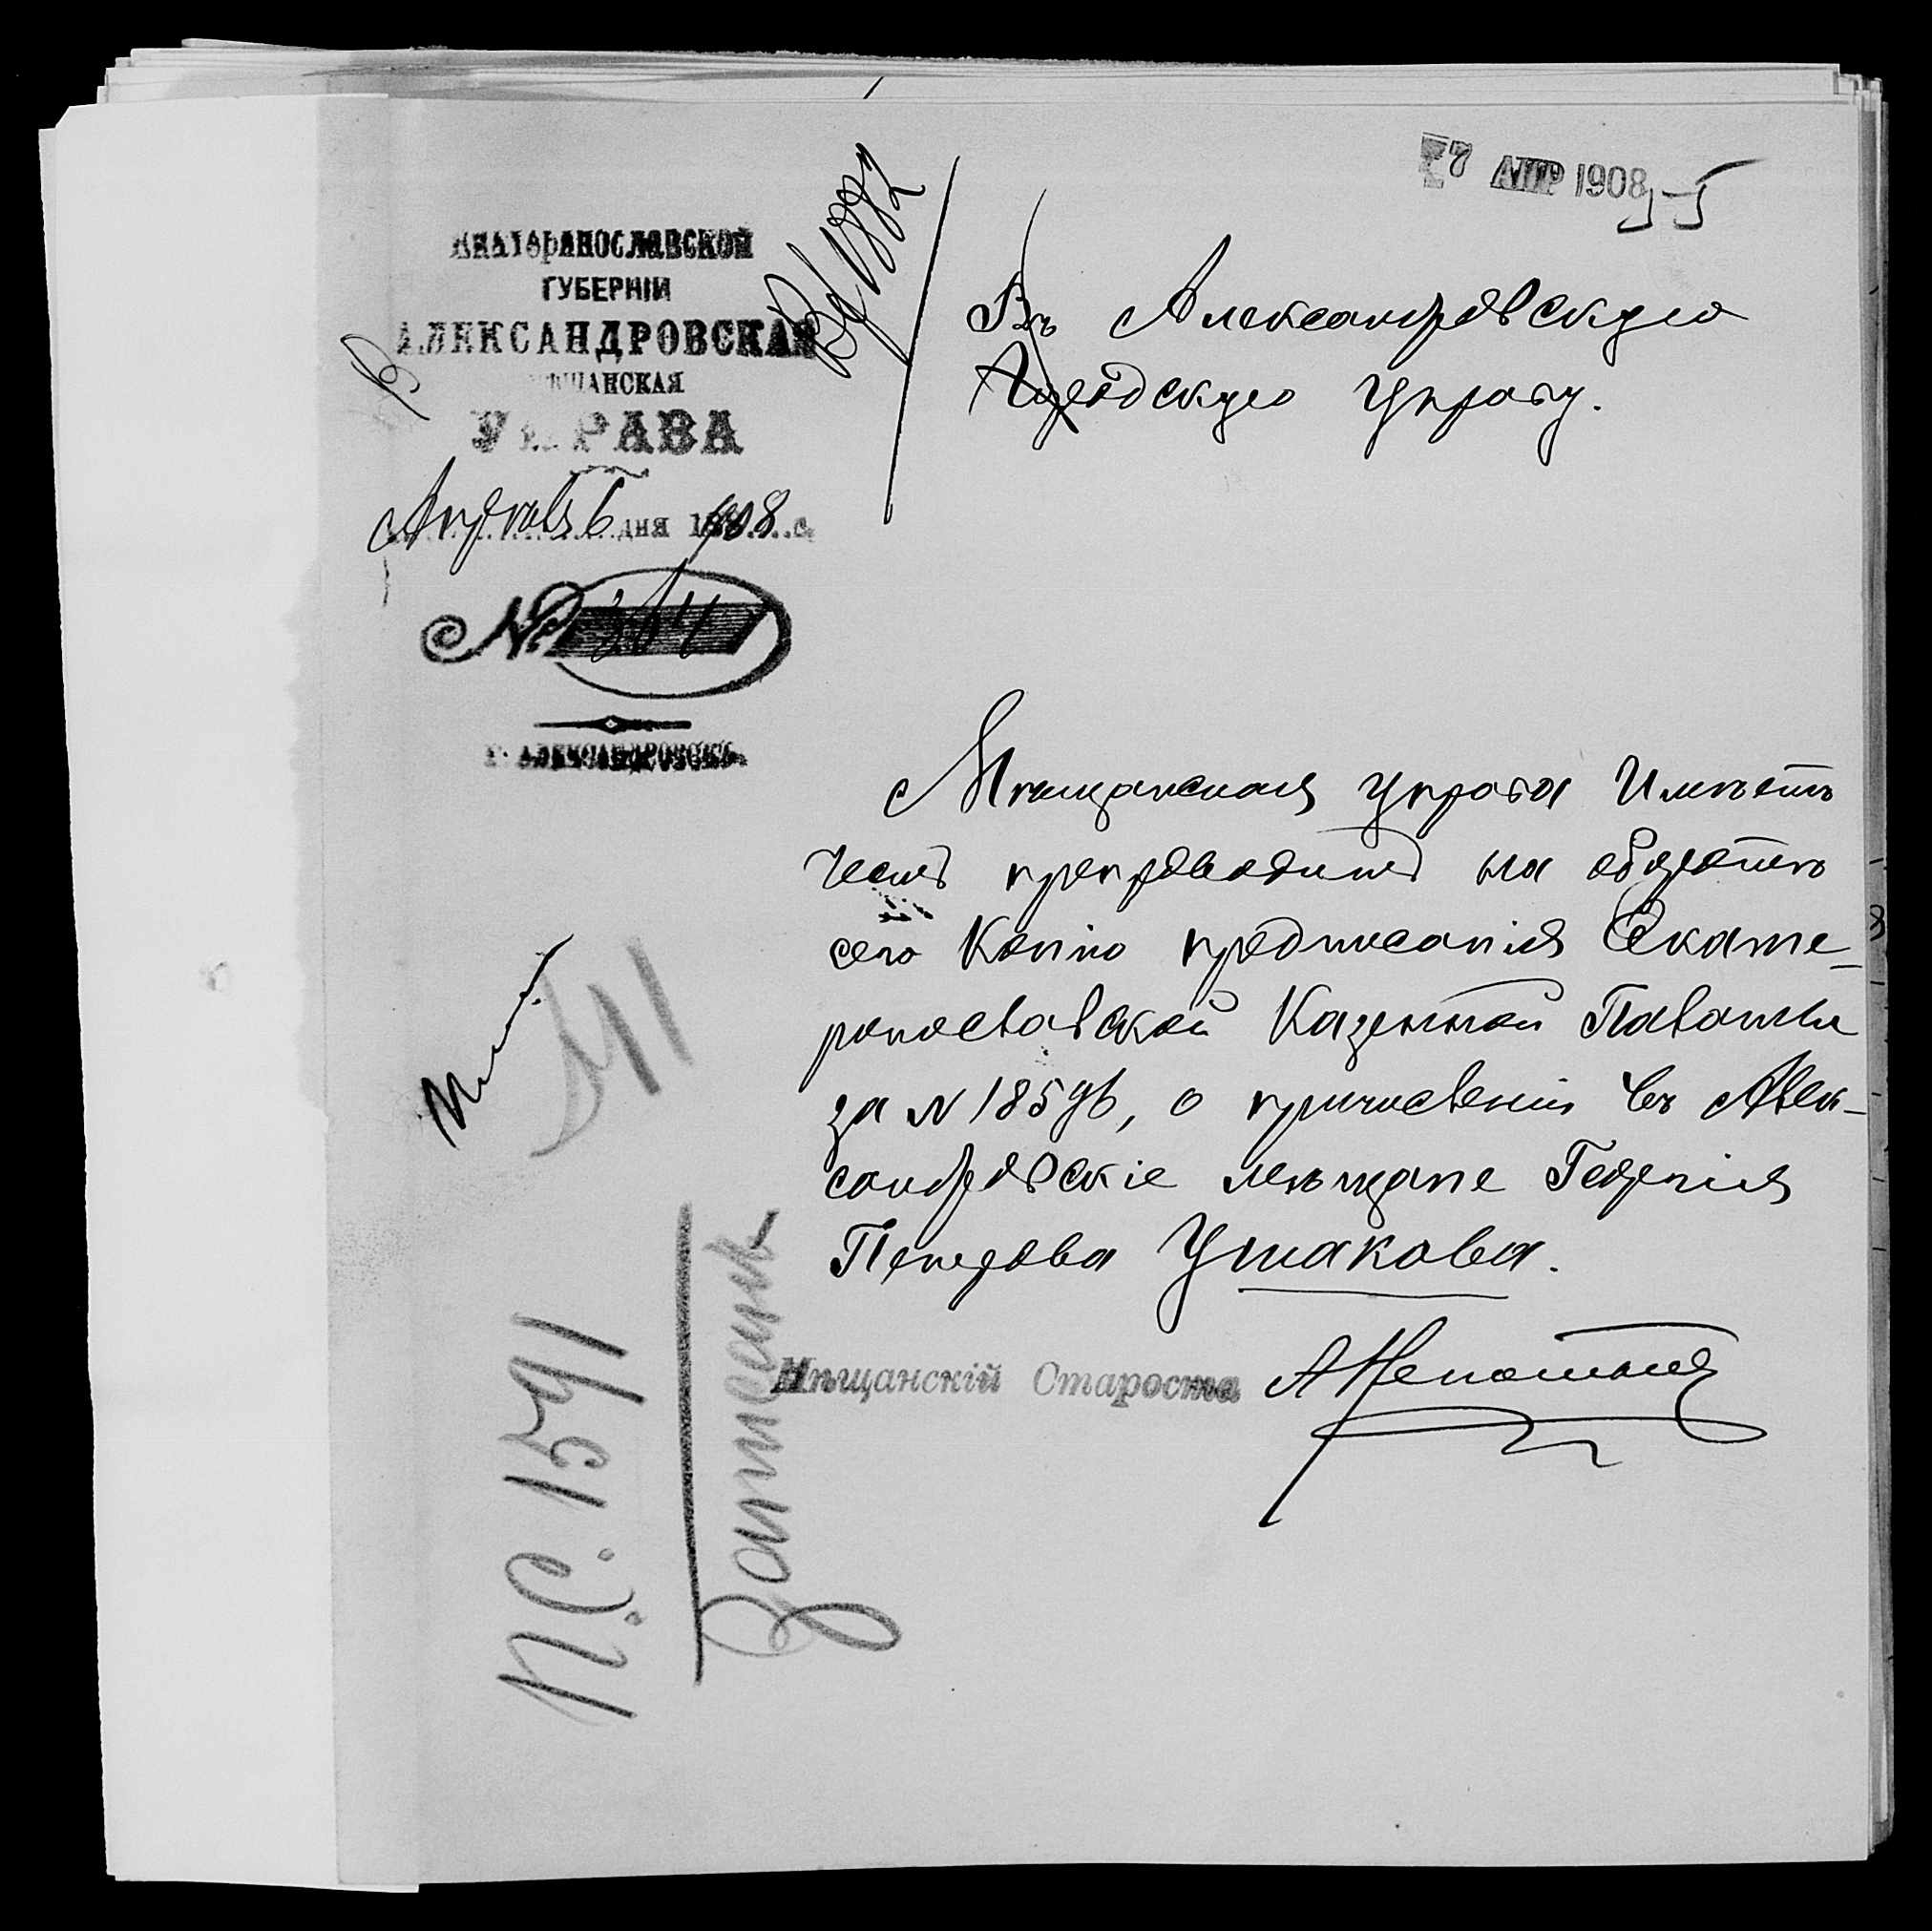 7 АПР 1908
55
ЕКАТЕРИНОСЛАВСКОЙ
ГУБЕРНІИ
АЛЕКСАНДРОВСКАЯ
МѢЩАНСКАЯ
УПРАВА
Апрѣля 6 дня 1908 г.
№ 204
Г. АЛЕКСАНДРОВСКЪ
Вх 1882
Въ Александровскую
Городскую Управу.
Мѣщанская управа Имѣетъ
честь препроводить на оборотѣ
сего Копію предписанія Екате-
ринославской Казенной Палаты
за № 18596, о причисленіи въ Алек-
сандровскіе мѣщане Георгія
Петрова Ушакова.
Мѣщанскій Староста
П.С. 1541
Записать